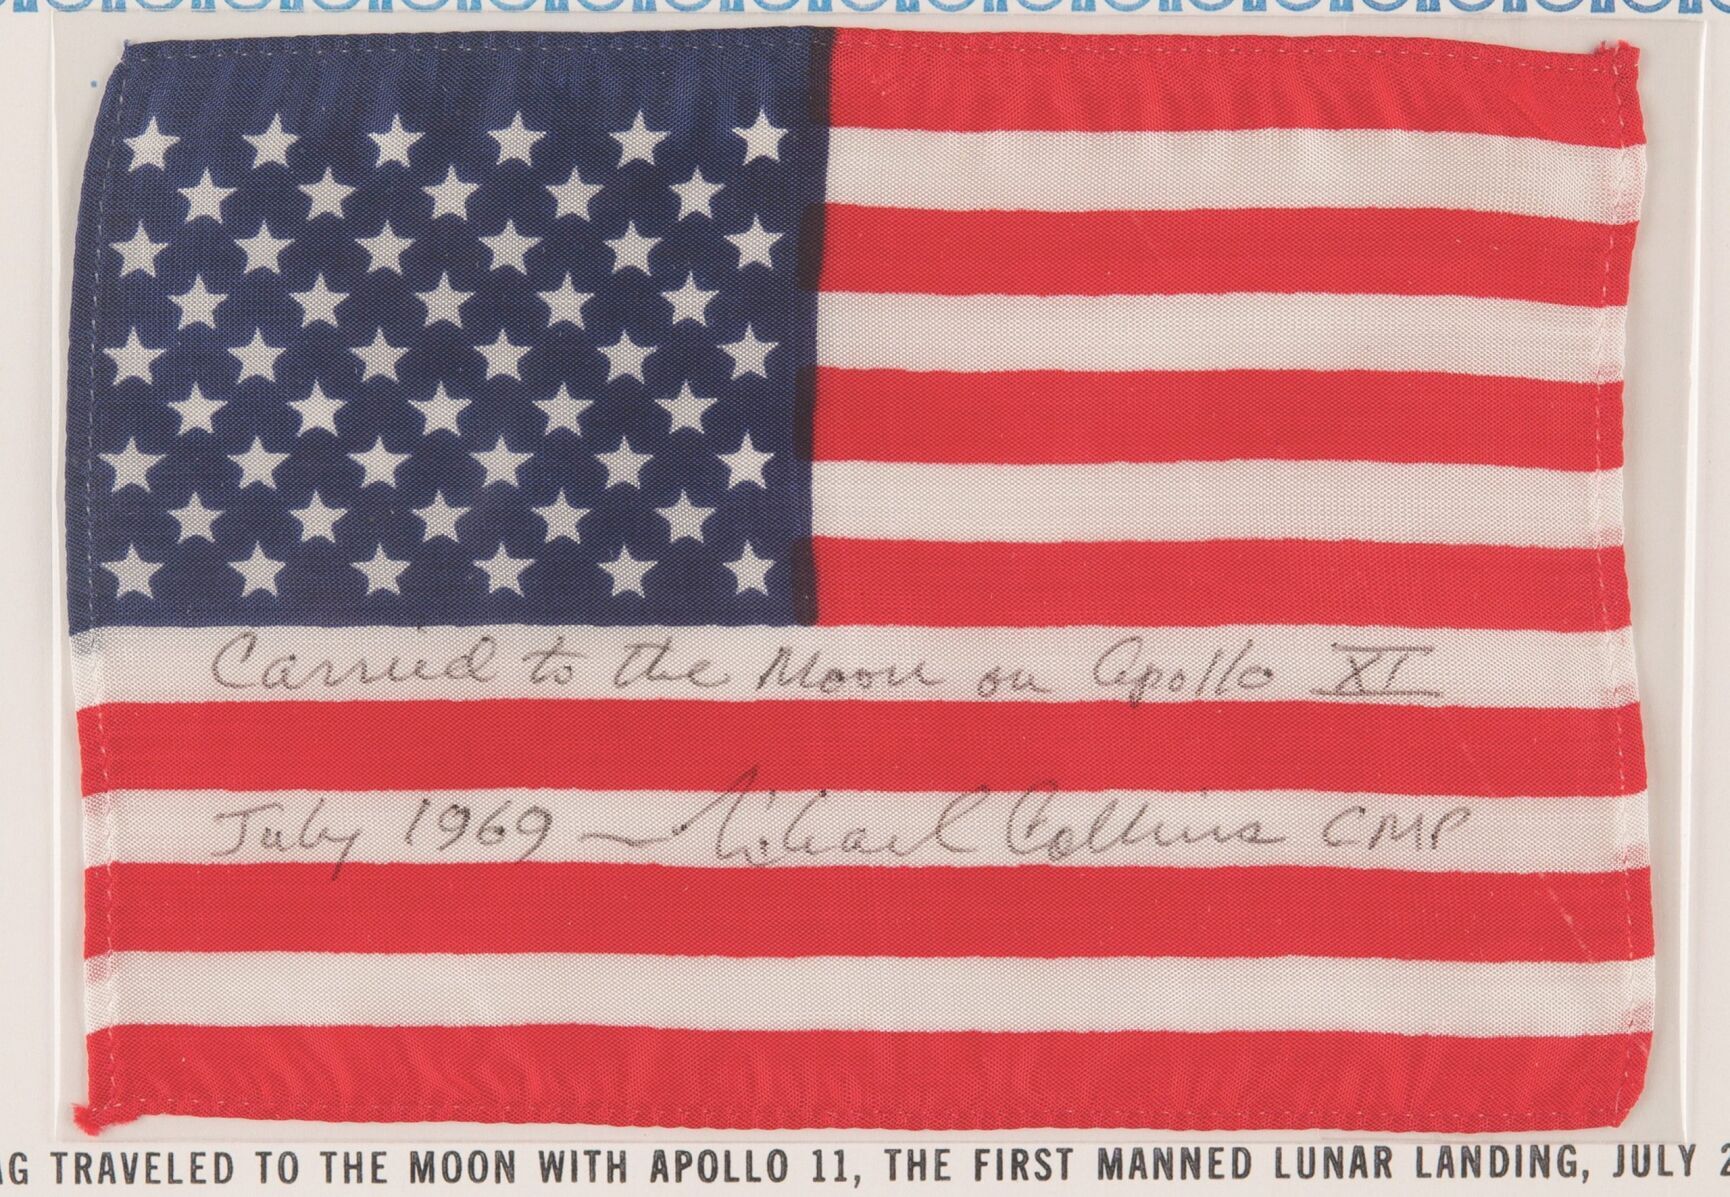 Carried to the Moon on Apollo XI
July 1969 — Michael Collins CMP
AG TRAVELED TO THE MOON WITH APOLLO 11, THE FIRST MANNED LUNAR LANDING, JULY 2